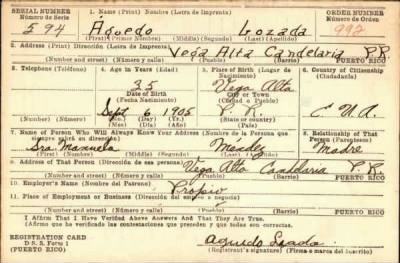 SERIAL NUMBER 1. Name (Print) Nombre (Letra de Imprenta) ORDER NUMBER
Número de Serie Número de Orden
594 Águedo Lozada 992
(First) (Primer Nombre) (Middle) (Segundo) (Last) (Apellido)
2. Address (Print) Dirección (Letra de Imprenta)
Vega Alta Candelaria P.R.
(Pueblo) (Barrio) PUERTO RICO
3. Telephone (Teléfono) 4. Age in Years (Edad) 5. Place of Birth (Lugar de Nacimiento) 6. Country of Citizenship (Ciudadanía)
35 Vega Alta
Date of Birth City or Town
(Fecha Nacimiento) (Ciudad o Pueblo)
Sept 6 1905 P. R. E U A
(Mo.) (Day) (Yr.) (State or country)
(Mes) (Día) (Año) (Estado o país)
7. Name of Person Who Will Always Know Your Address (Nombre de la Persona que siempre sabrá su dirección) 8. Relationship of That Person (Parentesco)
Sra. Manuela Méndez Madre
(First) (Primer Nombre) (Middle) (Segundo) (Last) (Apellido)
9. Address of That Person (Dirección de esa persona)
Vega Alta Candelaria P. R.
(Pueblo) (Barrio) PUERTO RICO
10. Employer's Name (Nombre del Patrono)
Propio
11. Place of Employment or Business (Dirección del empleo o negocio)
(Pueblo) (Barrio) PUERTO RICO
I Affirm That I Have Verified Above Answers And That They Are True.
(Afirmo que he verificado las contestaciones que preceden y que todas son correctas.
REGISTRATION CARD
D. S. S. Form 1 Aguedo Lozada
(Registrant's signature) (Firma o marca del inscrito)